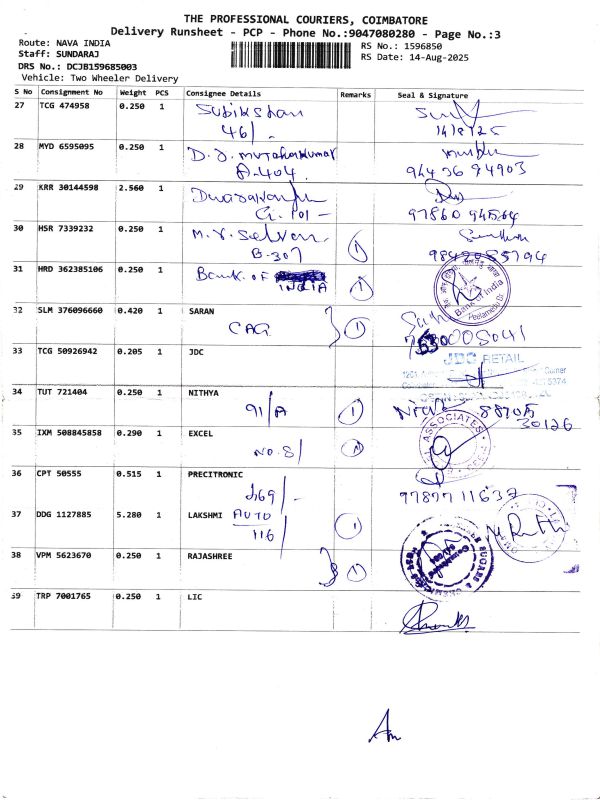 THE PROFESSIONAL COURIERS, COIMBATORE
Delivery Runsheet - PCP - Phone No.:9047080280 - Page No.:3
Route: NAVA INDIA
Staff: SUNDARAJ
DRS No.: DCJB159685003
Vehicle: Two Wheeler Delivery
RS No.: 1596850
RS Date: 14-Aug-2025
S No Consignment No Weight PCS Consignee Details Remarks Seal & Signature
27 TCG 474958 0.250 1 Subikshan
46/- 14/8/25
28 MYD 6595095 0.250 1 D.J. Muthukumar
A-404. 94436 94903
29 KRR 30144598 2.560 1
G. 101 - 97860 94564
30 HSR 7339232 0.250 1 M.V. Selven
B-307 1
31 HRD 362385106 0.250 1 Bank of INDIA 1 Bank of India
32 SLM 376096660 0.420 1 SARAN
CAG 1
33 TCG 50926942 0.205 1 JDC JDC RETAIL
34 TUT 721404 0.250 1 NITHYA
91/A 1 30126
35 IXM 508845858 0.290 1 EXCEL
NO. 8/ ASSOCIATES
36 CPT 50555 0.515 1 PRECITRONIC
269/- 97877 11637
37 DDG 1127885 5.280 1 LAKSHMI AUTO
116/ 1
38 VPM 5623670 0.250 1 RAJASHREE 1 SUGARS &
39 TRP 7001765 0.250 1 LIC